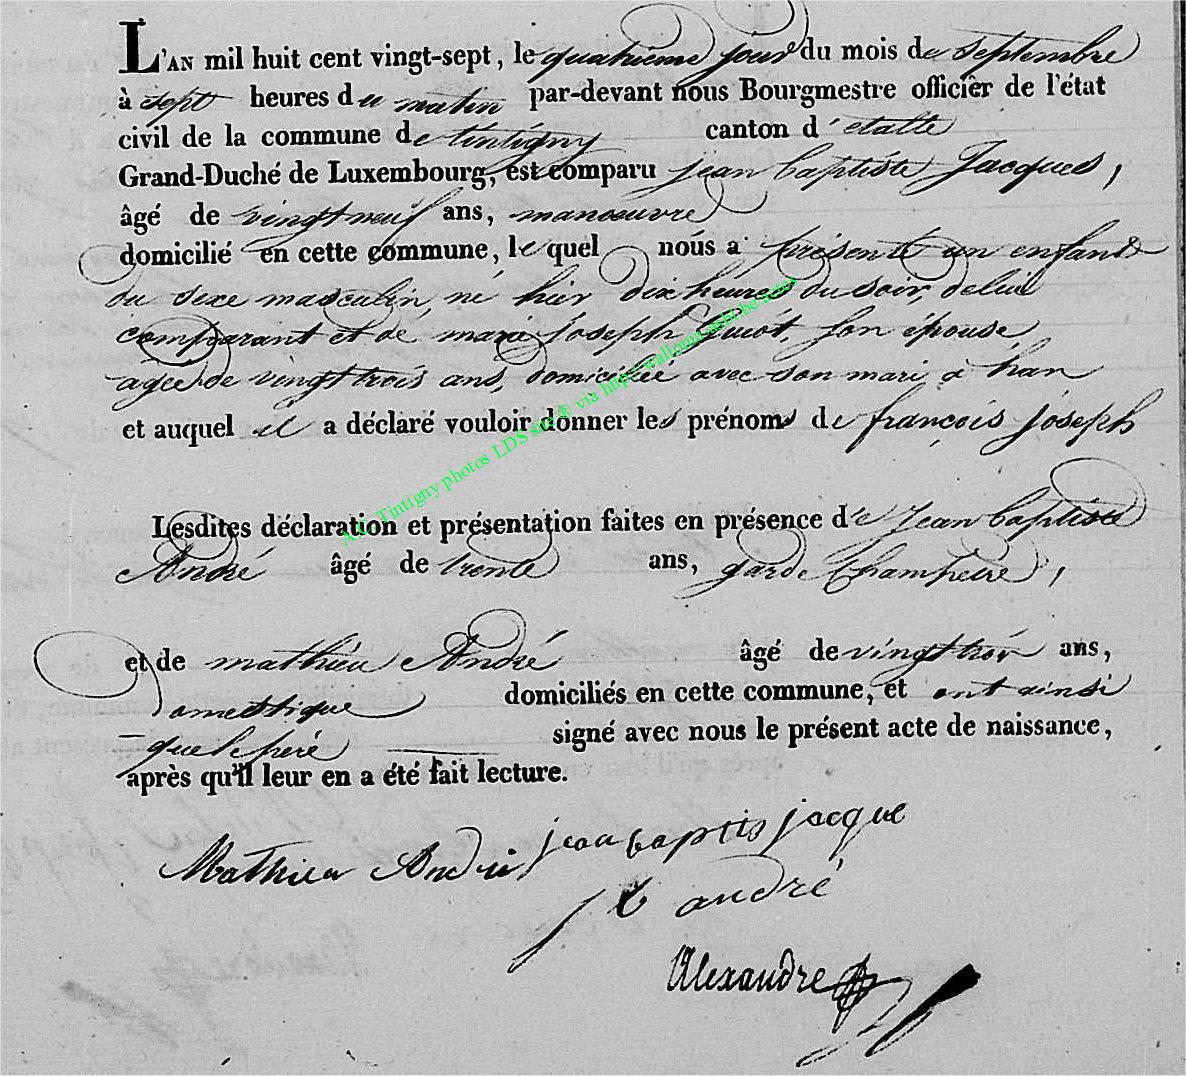 L'AN mil huit cent vingt-sept, le quatrieme jour du mois de Septembre
à sept heures du matin par-devant nous Bourgmestre officier de l'état
civil de la commune de tintigny canton d'etalle
Grand-Duché de Luxembourg, est comparu jean baptiste Jacques,
âgé de vingt neuf ans, manœuvre
domicilié en cette commune, lequel nous a présenté un enfant
du sexe masculin né hier dix heures du soir, de lui
comparant et de marie joseph son épouse,
agée de vingt trois ans, domiciliée avec son mari à han
et auquel il a déclaré vouloir donner les prénoms de françois joseph
Lesdites déclaration et présentation faites en présence de jean baptiste
André âgé de trente ans, garde Champetre,
et de mathieu André âgé de vingt trois ans,
domestique domiciliés en cette commune, et ont ainsi
que le père signé avec nous le présent acte de naissance,
après qu'il leur en a été fait lecture.
Mathieu André jean baptis jacque
j b andré
Alexandre
Tintigny photos LDS via http://wallonia-asbl.be/actes